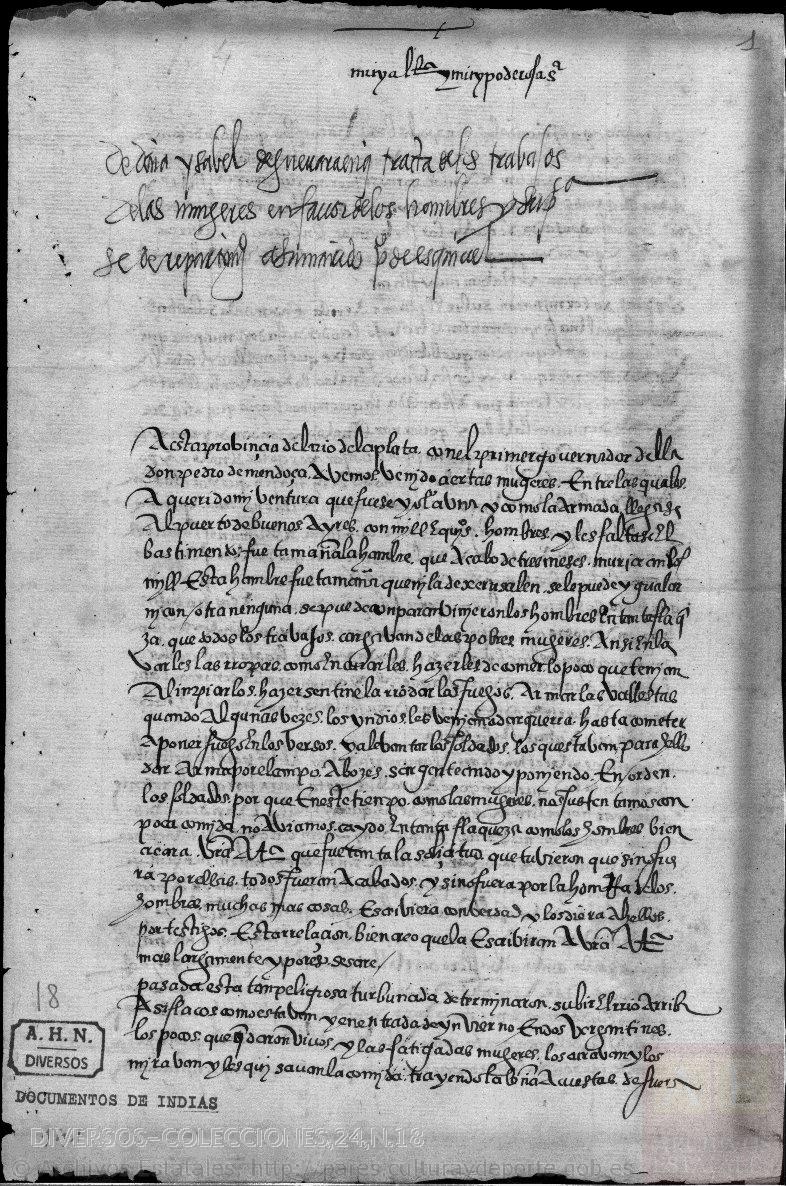 1
muy alta y muy poderosa sa
De doña ysabel de guevara en q tracta de los trabaJos
de las mugeres en favor de los hombres y
se de repartimio a su marido po de esquivel
A esta probinçia del rio de la plata, con el primer gouernador della
don pedro de mendoça, Avemos venido çiertas mugeres. Entre las quales
A querido mi ventura que fuese yo la vna y como la Armada llegase
Al puerto de buenos Ayres. con mill E quis. hombres. y les faltase El
bastimento. fue tamaña la hambre. que A cabo de tres meses. murieron los
mill. Esta hambre fue tamaña que ni la de xerusalen. se le puede ygualar
ni con otra nenguna. se puede conparar. vinieron los hombres En tanta flaque
za. que todos los travajos. cargavan de las pobres mugeres. Ansi En la
varles las rropas. como En curarles. hazerles de comer lo poco que tenian
A linpiarlos. hazer sentinela rrodar los fuegos. Armar las vallestas
quando Algunas vezes. los yndios les venien a dar guerra. hasta cometer
A poner fuego En los versos. y a levantar los soldados. los questavan para hello
dar Arma por el canpo. A bozes. sargenteando y poniendo. En orden.
los soldados. por que En este tienpo. como las mugeres. nos sustentamos con
poca comida. no Aviamos. caydo. En tanta flaqueza como los hombres. bien
creera. Vra A. que fue tanta la soliçitud. que tuvieron que si no fue
ra por ellas. todos fueran Acabados. y si no fuera por la honrra de los.
hombres. muchas mas cosas. Escriviera con verdad y los diera A hellos.
por testigos. Esta rrelaçion. bien creo que la Escribiran A vra A.
mas largamente y por eso sesare/
pasada esta tan peligrosa turbunada. determinaron. subir El rrio Arriba
Asi flacos como estavan y en entrada de ynvierno. En dos vergantines.
los pocos que quedaron vivos. y las fatigadas mugeres. los curavan y los
miravan y les guisavan la comida. trayendo la leña A cuestas. de fuera
18
A. H. N.
DIVERSOS
DOCUMENTOS DE INDIAS
DIVERSOS-COLECCIONES,24,N.18
© Archivos Estatales, http://pares.culturaydeporte.gob.es